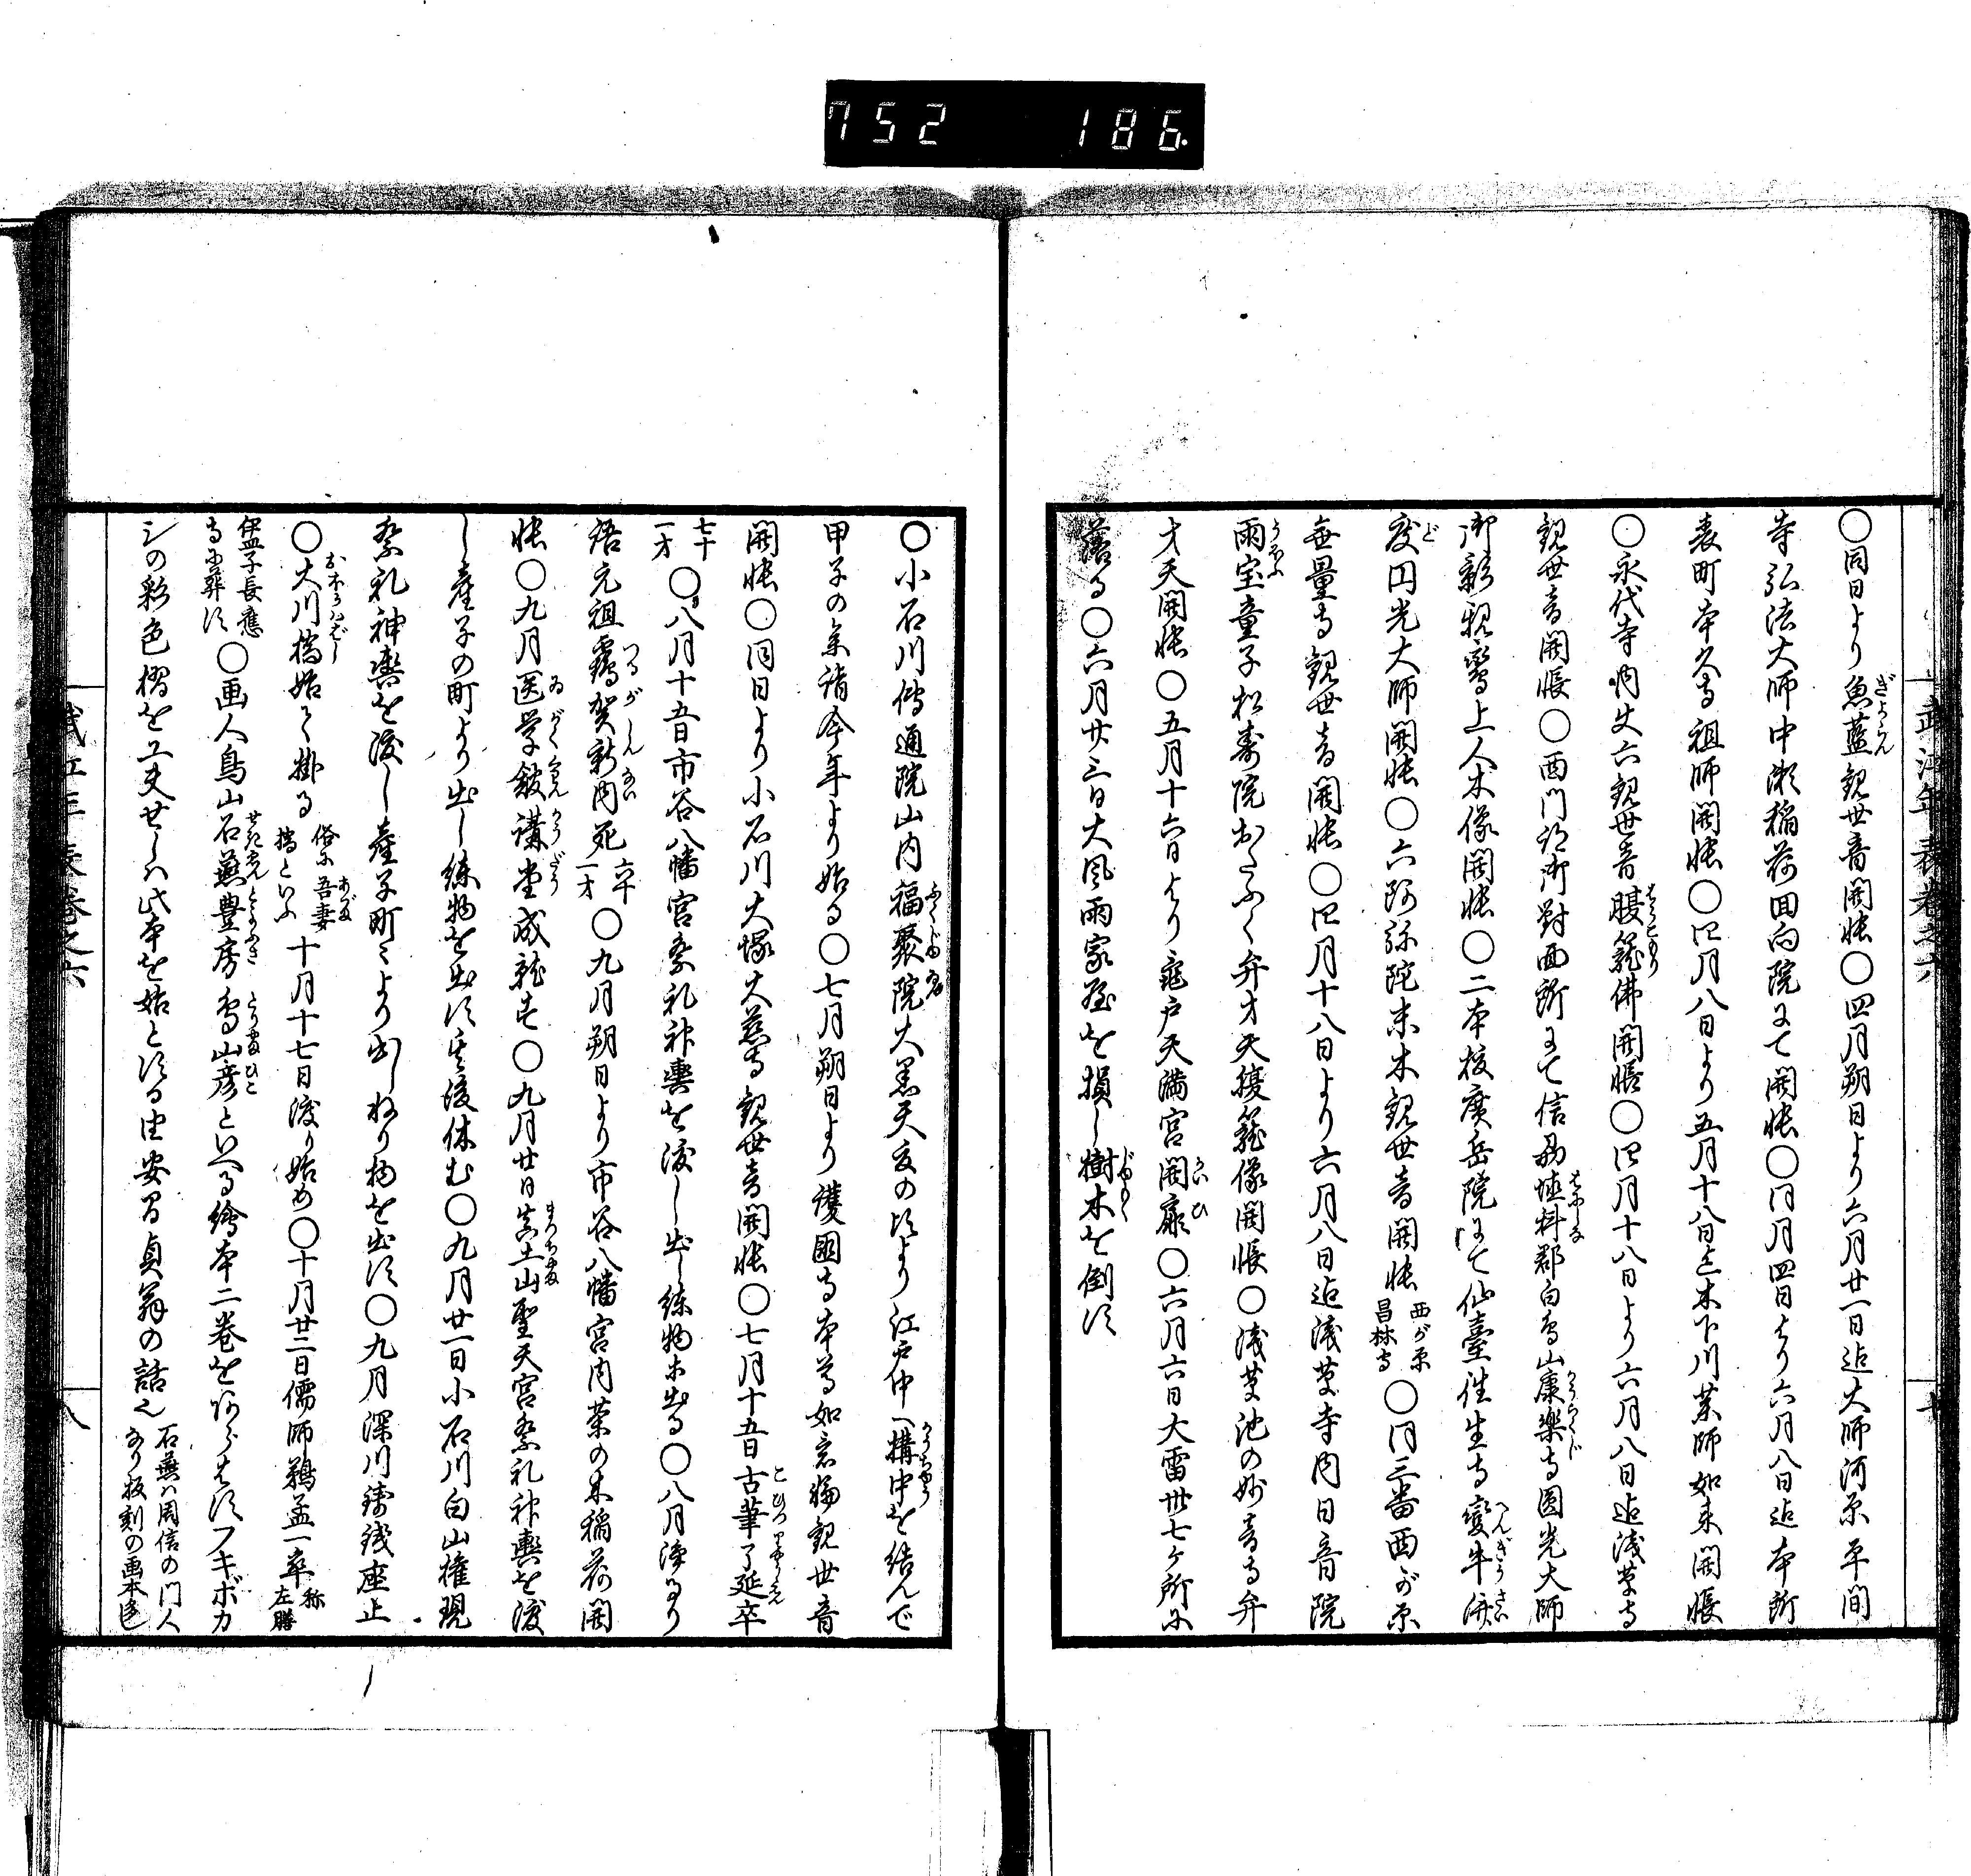 752 186
武江年表巻之六
七
○同日より魚藍観世音開帳○四月朔日より六月廿一日迄大師河原平間
寺弘法大師中瀬稲荷回向院にて開帳○同月四日より六月八日迄本所
表町本久寺祖師開帳○四月八日より五月十八日迄木下川薬師如来開帳
○永代寺内丈六観世音腹籠佛開帳○四月十八日より六月八日迄浅草寺
観世音開帳○西門跡御対面所にて信州埴科郡白鳥山康樂寺圓光大師
御影親鸞上人木像開帳○二本榎廣岳院にて仙臺往生寺變牛済
度円光大師開帳○六阿弥陀末木観世音開帳西が原昌林寺○同三番西が原
無量寺観世音開帳○四月十八日より六月八日迄浅草寺内日音院
雨宝童子松寿院おたふく弁才天腹籠像開帳○浅草池の妙音寺弁
才天開帳○五月十六日より亀戸天満宮開扉○六月六日大雷卅七ヶ所に
落る○六月廿三日大風雨家屋を損し樹木を倒す
○小石川傳通院山内福聚院大黒天文の頃より江戸中へ構中を結んで
甲子の参詣今年より始る○七月朔日より護國寺本尊如意輪観世音
開帳○同日より小石川大塚大慈寺観世音開帳○七月十五日古筆了延卒
七十一才○八月十五日市谷八幡宮祭礼神輿を渡し出し練物等出る○八月浄るり
語元祖鶴賀新内死六十一才○九月朔日より市谷八幡宮内茶の木稲荷開
帳○九月医学館講堂成就す○九月廿日真土山聖天宮祭礼神輿を渡
し産子の町より出し練物を出す其後休む○九月廿一日小石川白山権現
祭礼神輿を渡し産子町々より出しねり物を出す○九月深川鋳銭座止
○大川橋始て掛る俗に吾妻橋といふ十月十七日渡り始め○十月廿二日儒師鵜孟一卒称左膳
孟子長應寺に葬す○画人鳥山石燕豊房鳥山彦といへる繪本二巻をあらはすフキボカ
シの彩色摺を工夫せしハ此本を始とする由安田貞翁の話也石燕ハ周信の門人なり板刻の画本多し
武江年表巻之六
八